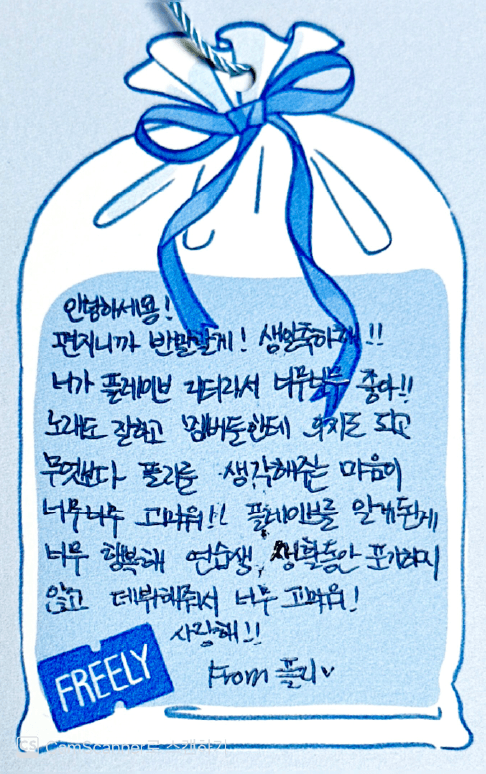 안녕하세용!
편지니까 반말할게! 생일축하해!!
너가 플레이브 리더라서 너무너무 좋아!!
노래도 잘하고 멤버들한테 의지도 되고
무엇보다 플리를 생각해주는 마음이
너무너무 고마워!! 플레이브를 알게된게
너무 행복해 연습생 생활동안 포기하지
않고 데뷔해줘서 너무 고마워!
사랑해!!
From 플리♡
FREELY
CS CamScanner로 스캔하기